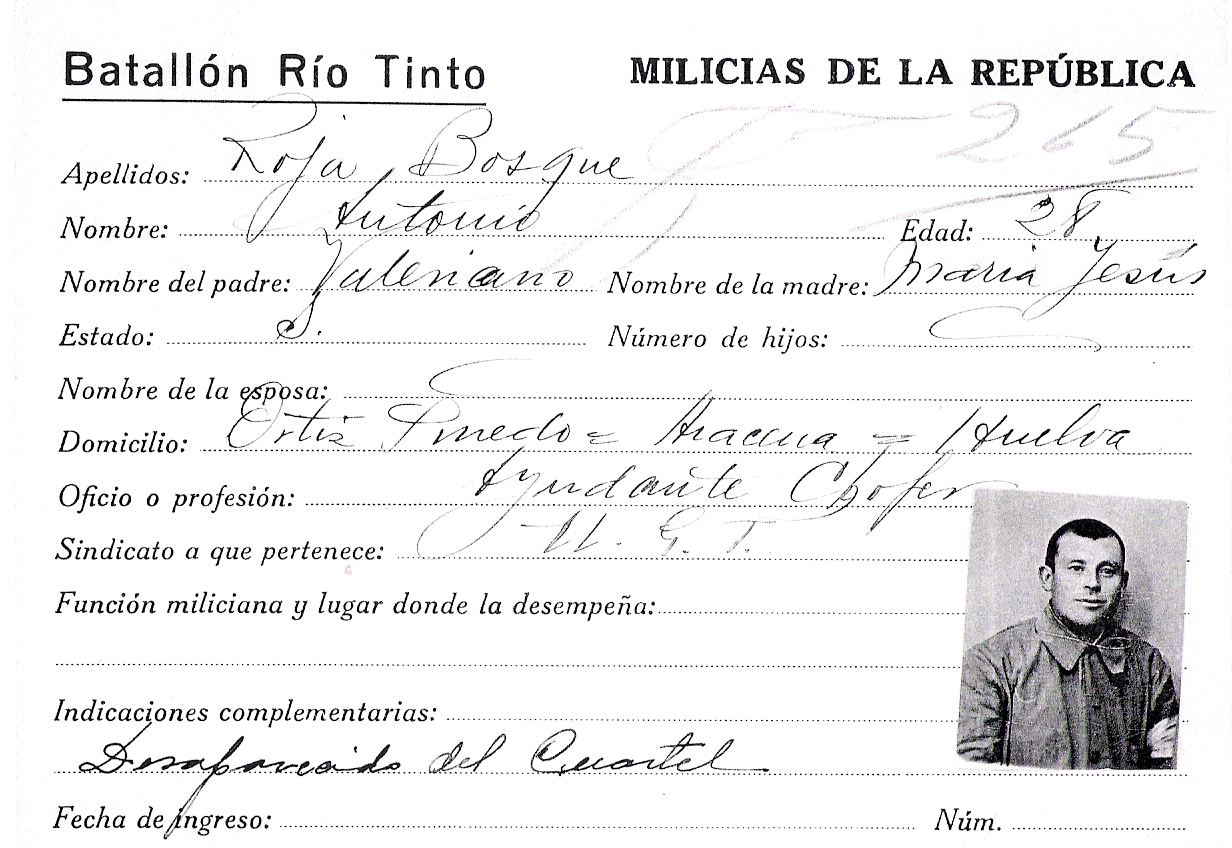 Batallón Río Tinto MILICIAS DE LA REPÚBLICA
265
Apellidos: Roja Bosque
Nombre: Antonio Edad: 28
Nombre del padre: Valeriano Nombre de la madre: Maria Jesús
Estado: S. Número de hijos:
Nombre de la esposa:
Domicilio: Ortiz Pinedo = Aracena = Huelva
Oficio o profesión: Ayudante Chofer
Sindicato a que pertenece: U. G. T.
Función miliciana y lugar donde la desempeña:
Indicaciones complementarias:
Desaparecido del Cuartel
Fecha de ingreso: Núm.